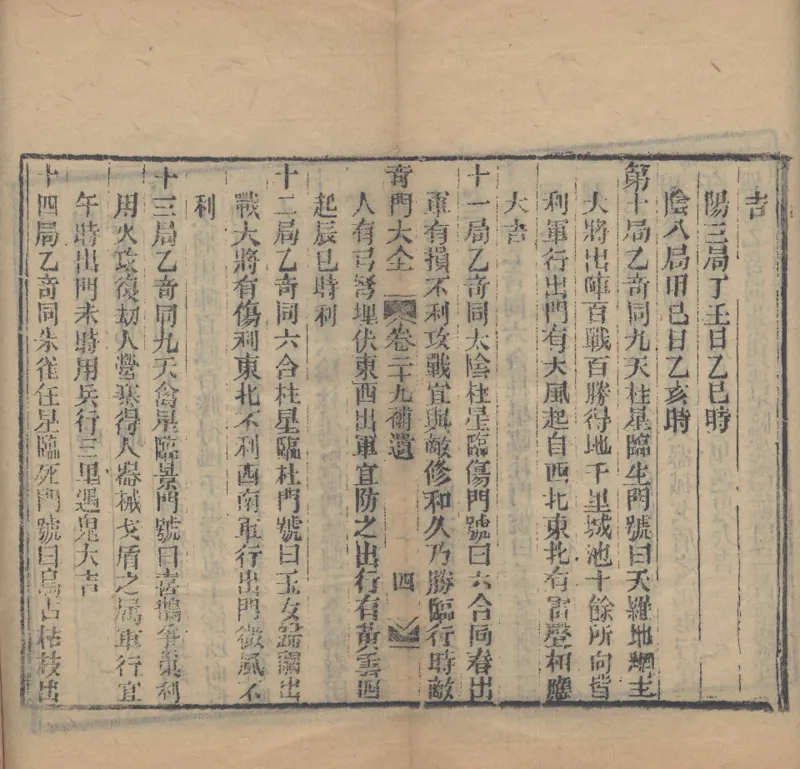 吉
陽三局丁壬日乙巳時
陰八局甲己日乙亥時
第十局乙奇同九天柱星臨生門號曰天羅地網主
大將出陣百戰百勝得地千里城池十餘所向皆
利軍行出門有大風起自西北東北有雷聲相應
大吉
十一局乙奇同太陰柱星臨傷門號曰六合同春出
軍有損不利攻戰宜與敵修和久乃勝臨行時敵
人有弓弩埋伏東西出軍宜防之出行有黃雲四
起辰巳時利
奇門大全 卷二十九補遺 四
十二局乙奇同六合柱星臨杜門號曰玉女歸爾出
戰大將有傷利東北不利西南軍行出門微風不
利
十三局乙奇同九天禽星臨景門號曰喜鵲爭巢利
用火攻復劫人營寨得人器械戈盾之屬軍行宜
午時出門未時用兵行三里遇鬼大吉
十四局乙奇同朱雀任星臨死門號曰烏占枯枝出